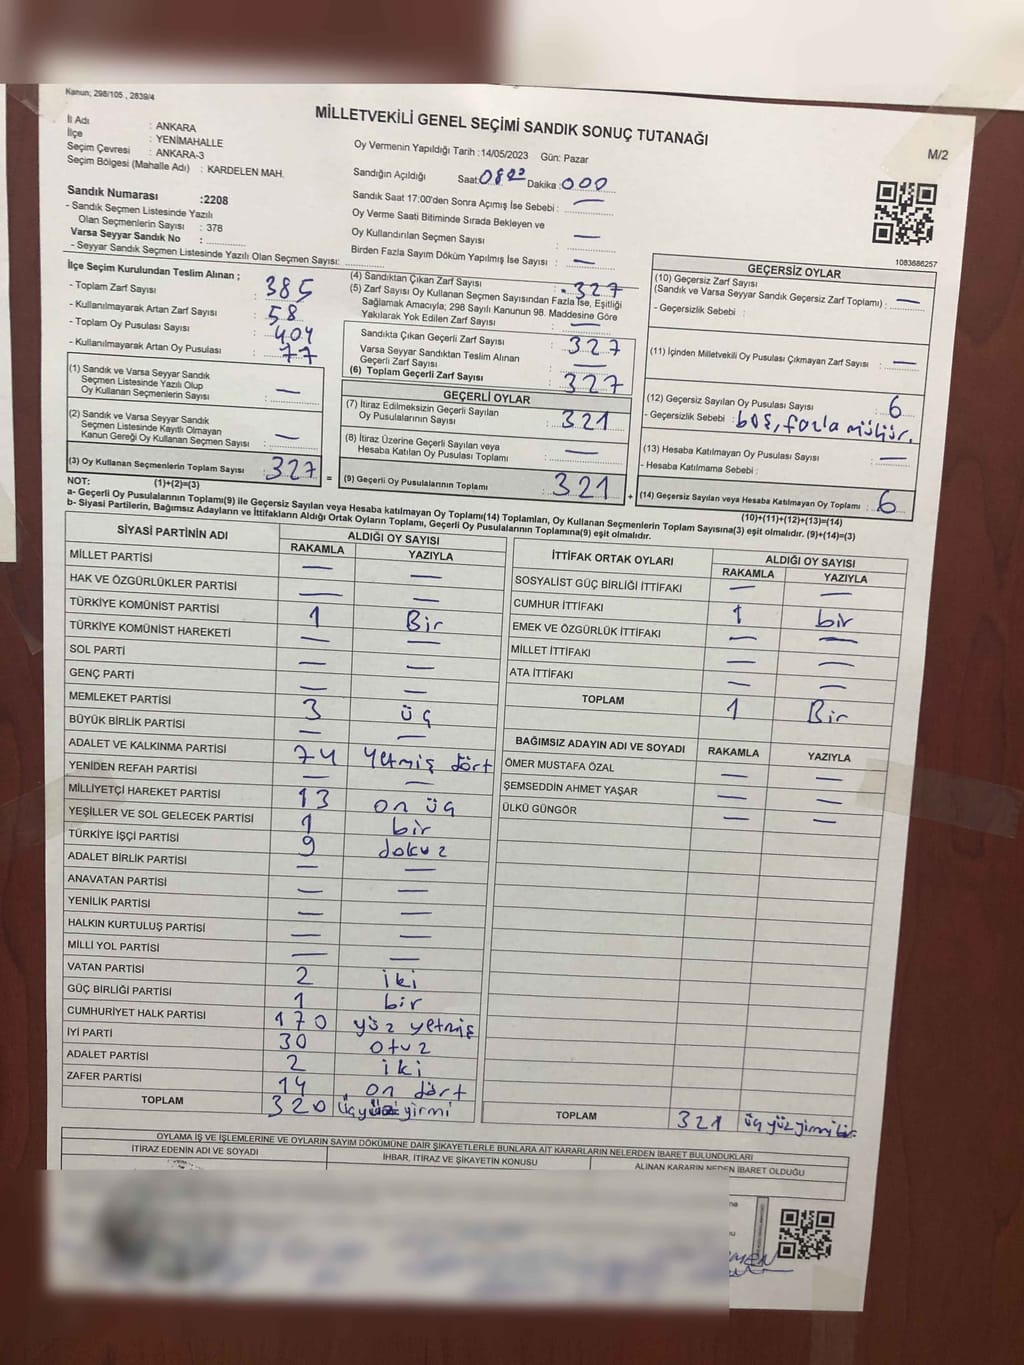 Kanun; 298/105 , 2839/4
MİLLETVEKİLİ GENEL SEÇİMİ SANDIK SONUÇ TUTANAĞI
M/2
İl Adı : ANKARA
İlçe : YENİMAHALLE
Seçim Çevresi : ANKARA-3
Seçim Bölgesi (Mahalle Adı) : KARDELEN MAH.
Oy Vermenin Yapıldığı Tarih :14/05/2023 Gün: Pazar
Sandığın Açıldığı Saat: Dakika: 000
Sandık Numarası :2208
- Sandık Seçmen Listesinde Yazılı
Olan Seçmenlerin Sayısı : 378
Varsa Seyyar Sandık No :
- Seyyar Sandık Seçmen Listesinde Yazılı Olan Seçmen Sayısı:
Sandık Saat 17:00'den Sonra Açımış İse Sebebi : —
Oy Verme Saati Bitiminde Sırada Bekleyen ve
Oy Kullandırılan Seçmen Sayısı : —
Birden Fazla Sayım Döküm Yapılmış İse Sayısı : —
1083686257
İlçe Seçim Kurulundan Teslim Alınan ;
- Toplam Zarf Sayısı : 385
- Kullanılmayarak Artan Zarf Sayısı : 58
- Toplam Oy Pusulası Sayısı : 404
- Kullanılmayarak Artan Oy Pusulası : 77
(1) Sandık ve Varsa Seyyar Sandık
Seçmen Listesinde Yazılı Olup
Oy Kullanan Seçmenlerin Sayısı : —
(2) Sandık ve Varsa Seyyar Sandık
Seçmen Listesinde Kayıtlı Olmayan
Kanun Gereği Oy Kullanan Seçmen Sayısı : —
(3) Oy Kullanan Seçmenlerin Toplam Sayısı : 327 =
(4) Sandıktan Çıkan Zarf Sayısı : 327
(5) Zarf Sayısı Oy Kullanan Seçmen Sayısından Fazla İse, Eşitliği
Sağlamak Amacıyla; 298 Sayılı Kanunun 98. Maddesine Göre
Yakılarak Yok Edilen Zarf Sayısı : —
Sandıkta Çıkan Geçerli Zarf Sayısı : 327
Varsa Seyyar Sandıktan Teslim Alınan
Geçerli Zarf Sayısı : —
(6) Toplam Geçerli Zarf Sayısı : 327
GEÇERLİ OYLAR
(7) İtiraz Edilmeksizin Geçerli Sayılan
Oy Pusulalarının Sayısı : 321
(8) İtiraz Üzerine Geçerli Sayılan veya
Hesaba Katılan Oy Pusulası Toplamı : —
(9) Geçerli Oy Pusulalarının Toplamı : 321 +
GEÇERSİZ OYLAR
(10) Geçersiz Zarf Sayısı
(Sandık ve Varsa Seyyar Sandık Geçersiz Zarf Toplamı) : —
- Geçersizlik Sebebi :
(11) İçinden Milletvekili Oy Pusulası Çıkmayan Zarf Sayısı : —
(12) Geçersiz Sayılan Oy Pusulası Sayısı : 6
- Geçersizlik Sebebi : boş, fazla mühür.
(13) Hesaba Katılmayan Oy Pusulası Sayısı : —
- Hesaba Katılmama Sebebi :
(14) Geçersiz Sayılan veya Hesaba Katılmayan Oy Toplamı : 6
NOT: (1)+(2)=(3)
(10)+(11)+(12)+(13)=(14)
a- Geçerli Oy Pusulalarının Toplamı(9) ile Geçersiz Sayılan veya Hesaba katılmayan Oy Toplamı(14) Toplamları, Oy Kullanan Seçmenlerin Toplam Sayısına(3) eşit olmalıdır. (9)+(14)=(3)
b- Siyasi Partilerin, Bağımsız Adayların ve İttifakların Aldığı Ortak Oyların Toplamı, Geçerli Oy Pusulalarının Toplamına(9) eşit olmalıdır.
SİYASİ PARTİNİN ADI ALDIĞI OY SAYISI
RAKAMLA YAZIYLA
MİLLET PARTİSİ — —
HAK VE ÖZGÜRLÜKLER PARTİSİ — —
TÜRKİYE KOMÜNİST PARTİSİ 1 Bir
TÜRKİYE KOMÜNİST HAREKETİ — —
SOL PARTİ — —
GENÇ PARTİ — —
MEMLEKET PARTİSİ 3 üç
BÜYÜK BİRLİK PARTİSİ — —
ADALET VE KALKINMA PARTİSİ 74 yetmiş dört
YENİDEN REFAH PARTİSİ — —
MİLLİYETÇİ HAREKET PARTİSİ 13 on üç
YEŞİLLER VE SOL GELECEK PARTİSİ 1 bir
TÜRKİYE İŞÇİ PARTİSİ 9 dokuz
ADALET BİRLİK PARTİSİ — —
ANAVATAN PARTİSİ — —
YENİLİK PARTİSİ — —
HALKIN KURTULUŞ PARTİSİ — —
MİLLİ YOL PARTİSİ — —
VATAN PARTİSİ 2 iki
GÜÇ BİRLİĞİ PARTİSİ 1 bir
CUMHURİYET HALK PARTİSİ 170 yüz yetmiş
İYİ PARTİ 30 otuz
ADALET PARTİSİ 2 iki
ZAFER PARTİSİ 14 on dört
TOPLAM 320 üçyüz yirmi
İTTİFAK ORTAK OYLARI ALDIĞI OY SAYISI
RAKAMLA YAZIYLA
SOSYALİST GÜÇ BİRLİĞİ İTTİFAKI — —
CUMHUR İTTİFAKI 1 bir
EMEK VE ÖZGÜRLÜK İTTİFAKI — —
MİLLET İTTİFAKI — —
ATA İTTİFAKI — —
TOPLAM 1 Bir
BAĞIMSIZ ADAYIN ADI VE SOYADI RAKAMLA YAZIYLA
ÖMER MUSTAFA ÖZAL — —
ŞEMSEDDİN AHMET YAŞAR — —
ÜLKÜ GÜNGÖR — —
TOPLAM 321 üç yüz yirmi bir
OYLAMA İŞ VE İŞLEMLERİNE VE OYLARIN SAYIM DÖKÜMÜNE DAİR ŞİKAYETLERLE BUNLARA AİT KARARLARIN NELERDEN İBARET BULUNDUKLARI
İTİRAZ EDENİN ADI VE SOYADI İHBAR, İTİRAZ VE ŞİKAYETİN KONUSU ALINAN KARARIN NEDEN İBARET OLDUĞU